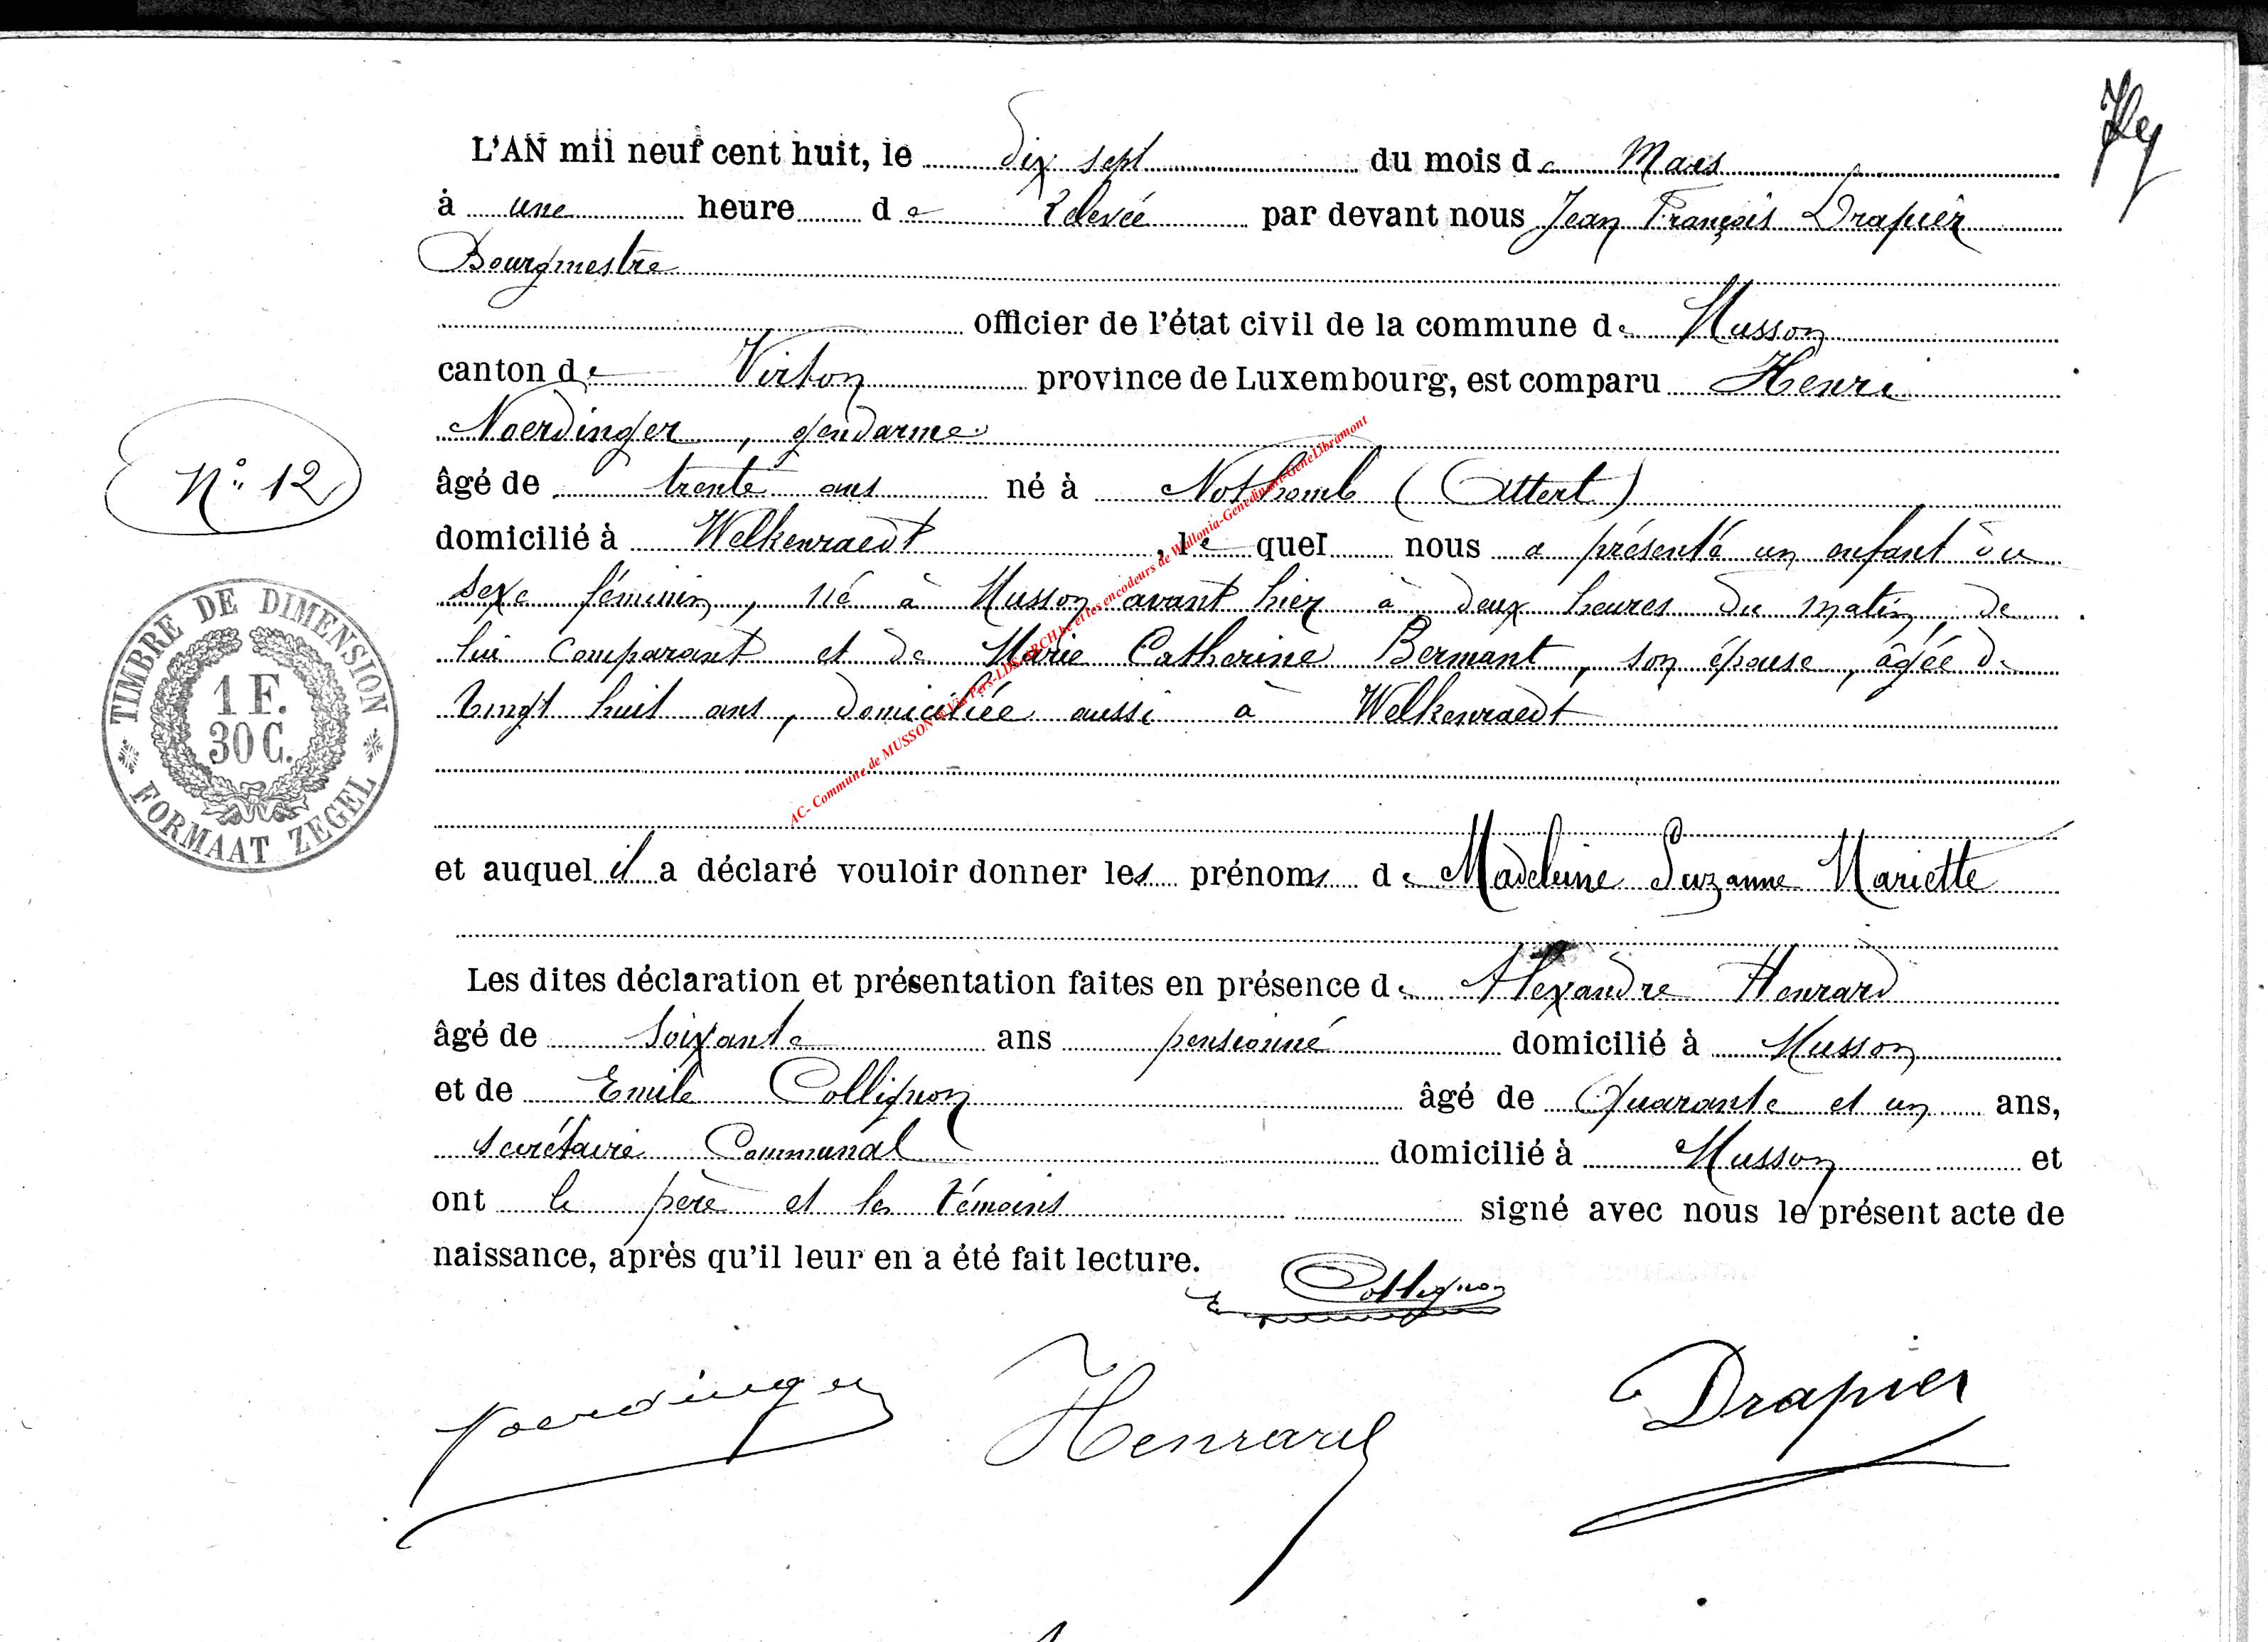 L'AN mil neuf cent huit, le dix sept du mois de Mars
à une heure de relevée par devant nous Jean François Drapier
Bourgmestre
officier de l'état civil de la commune de Musson
canton de Virton province de Luxembourg, est comparu Henri
Noerdinger, gendarme
âgé de trente ans né à Nothomb (Attert)
domicilié à Welkenraedt, lequel nous a présenté un enfant du
sexe féminin, né à Musson avant hier à deux heures du matin, de
lui comparant et de Marie Catherine Bermant, son épouse, âgée de
vingt huit ans, domiciliée aussi à Welkenraedt
et auquel il a déclaré vouloir donner les prénoms de Madeleine Suzanne Mariette
Les dites déclaration et présentation faites en présence de Alexandre Henrard
âgé de soixante ans pensionné domicilié à Musson
et de Emile Collignon âgé de Quarante et un ans,
secrétaire Communal domicilié à Musson et
ont le père et les témoins signé avec nous le présent acte de
naissance, après qu'il leur en a été fait lecture.
E Collignon
Noerdinger Henrard Drapier
N° 12
TIMBRE DE DIMENSION
1 F.
30 C.
FORMAAT ZEGEL